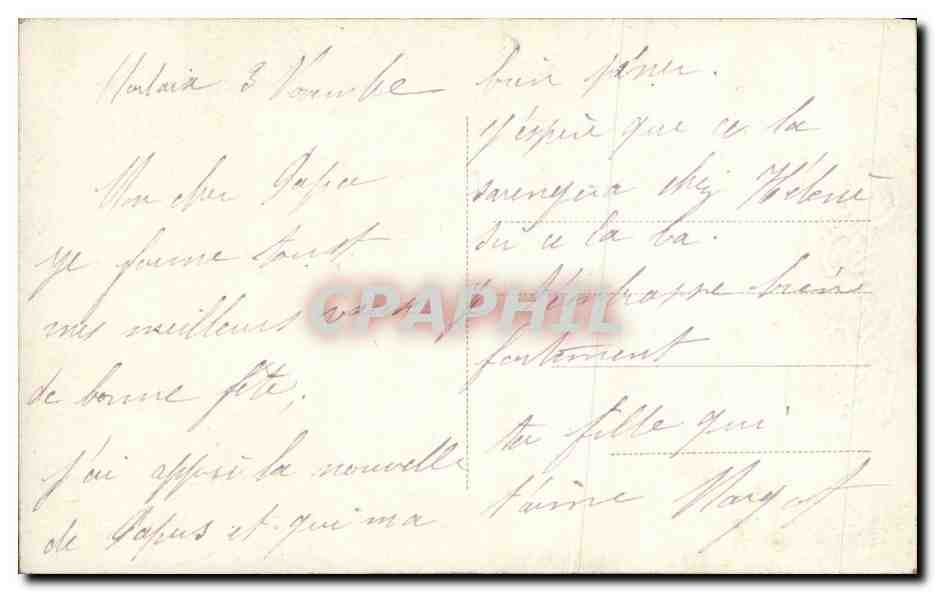 Morlaix 3 Novembre
Mon cher Papa
je forme tout
mes meilleurs vœux
de bonne fête,
j'ai appri la nouvelle
de et qui ma
bien péner.
j'espère que ce la
sarengera chez Hélène
ce la ba.
Je t'embrasse biene
fortement
ta fille qui
t'aime Margot
CPAPHIL